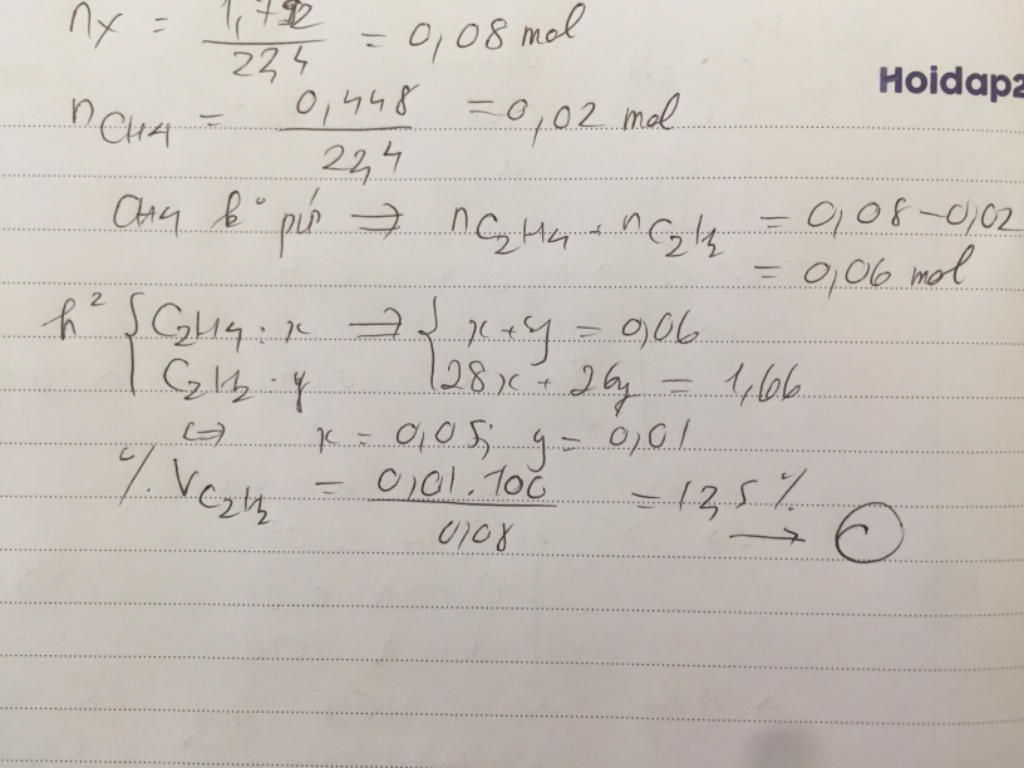 nX = 1,792 / 22,4 = 0,08 mol
Hoidap2
nCH4 = 0,448 / 22,4 = 0,02 mol
CH4 k° pứ ⇒ nC2H4 + nC2H2 = 0,08 - 0,02
= 0,06 mol
h² { C2H4 : x ⇒ { x + y = 0,06
C2H2 : y 28x + 26y = 1,66
⇔ x = 0,05; y = 0,01
% VC2H2 = 0,01.100 / 0,08 = 12,5 %
→ C